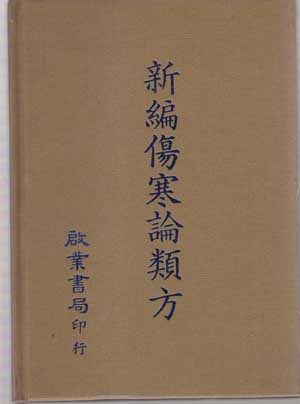 新編傷寒論類方
啟業書局印行